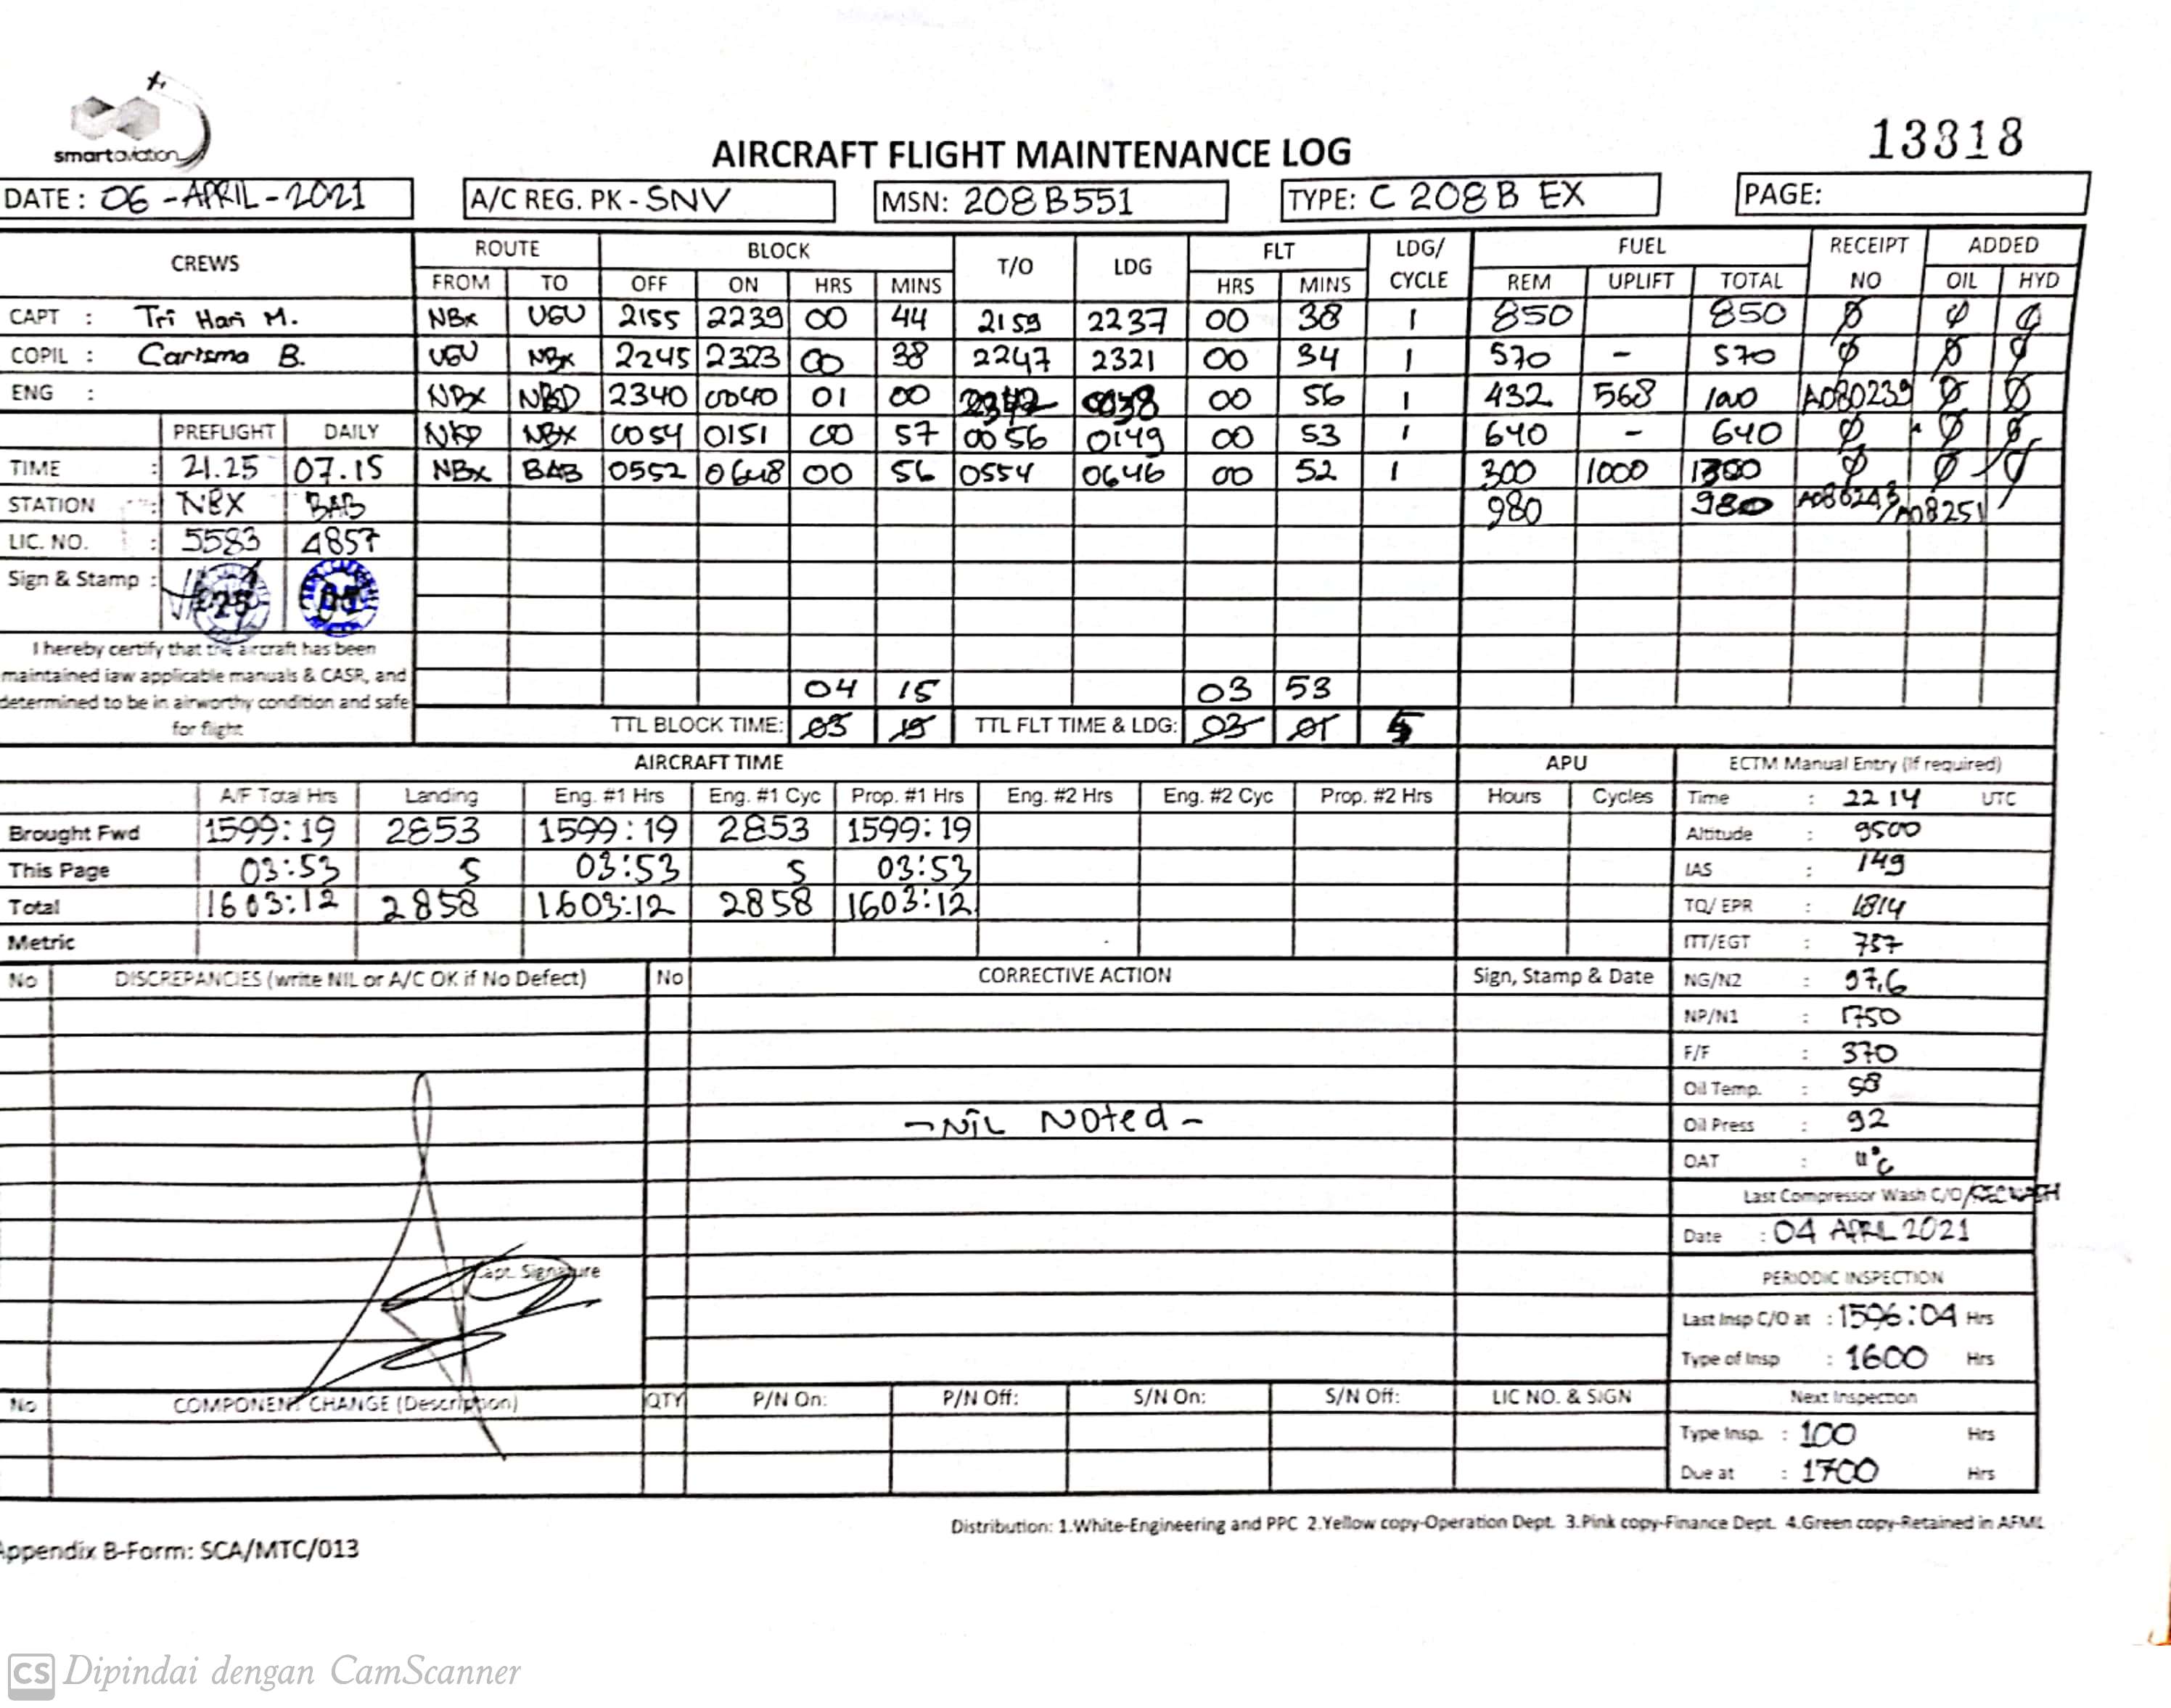 smartaviation
13318
AIRCRAFT FLIGHT MAINTENANCE LOG
DATE : 06 - APRIL - 2021 A/C REG. PK - SNV MSN: 208B551 TYPE: C 208 B EX PAGE:
CREWS ROUTE BLOCK T/O LDG FLT LDG/ CYCLE FUEL RECEIPT NO ADDED
FROM TO OFF ON HRS MINS HRS MINS REM UPLIFT TOTAL OIL HYD
CAPT : Tri Hari M. NBX UGU 2155 2239 00 44 2159 2237 00 38 1 850 850 Ø Ø Ø
COPIL : Carisma B. UGU NBX 2245 2323 00 38 2247 2321 00 34 1 570 - 570 Ø Ø Ø
ENG : NBX 2340 0040 01 00 2342 0038 00 56 1 432 568 A080239 Ø Ø
PREFLIGHT DAILY NBX 0054 0151 00 57 0056 0149 00 53 1 640 - 640 Ø Ø Ø
TIME : 21.25 07.15 NBX BAB 0552 0648 00 56 0554 0646 00 52 1 300 1000 1300 Ø Ø Ø
STATION : NBX BAB 980 980 A08251
LIC. NO. : 5583 4857
Sign & Stamp : 25
I hereby certify that the aircraft has been
maintained iaw applicable manuals & CASR, and
determined to be in airworthy condition and safe
for flight
04 15 03 53
TTL BLOCK TIME: 03 15 TTL FLT TIME & LDG: 03 01 5
AIRCRAFT TIME APU ECTM Manual Entry (If required)
A/F Total Hrs Landing Eng. #1 Hrs Eng. #1 Cyc Prop. #1 Hrs Eng. #2 Hrs Eng. #2 Cyc Prop. #2 Hrs Hours Cycles Time : 22 14 UTC
Brought Fwd 1599:19 2853 1599:19 2853 1599:19 Altitude : 9500
This Page 03:53 5 03:53 5 03:53 IAS : 149
Total 1603:12 2858 1603:12 2858 1603:12 TQ/ EPR : 1814
Metric ITT/EGT : 757
No DISCREPANCIES (write NIL or A/C OK if No Defect) No CORRECTIVE ACTION Sign, Stamp & Date NG/N2 : 97,6
NP/N1 : 1750
F/F : 370
Oil Temp. : 58
- NIL Noted -
Oil Press : 92
OAT : 11°C
Last Compressor Wash C/O/
Date : 04 APRL 2021
Capt. Signature
PERIODIC INSPECTION
Last Insp C/O at : 1596:04 Hrs
Type of Insp : 1600 Hrs
No COMPONENT CHANGE (Description) QTY P/N On: P/N Off: S/N On: S/N Off: LIC NO. & SIGN Next Inspection
Type Insp. : 100 Hrs
Due at : 1700 Hrs
Distribution: 1.White-Engineering and PPC 2.Yellow copy-Operation Dept. 3.Pink copy-Finance Dept. 4.Green copy-Retained in AFML
Appendix B-Form: SCA/MTC/013
CS Dipindai dengan CamScanner